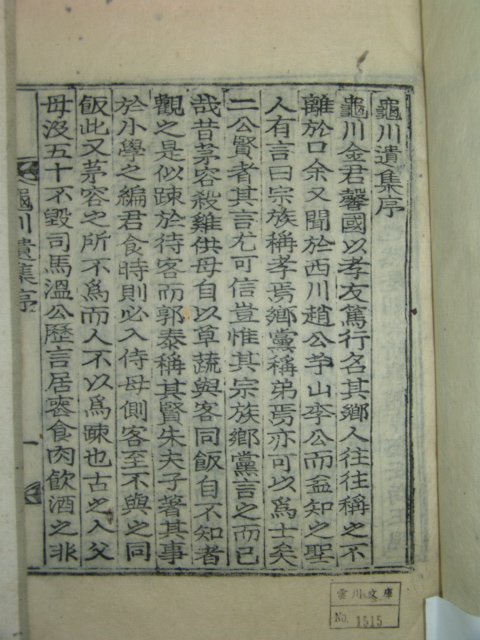 龜川遺集序
龜川金君馨國以孝友篤行名其鄉人往往稱之不
離於口余又聞於西川趙公芧山李公而益知之聖
人有言曰宗族稱孝焉鄉黨稱弟焉亦可以為士矣
二公賢者其言尤可信豈惟其宗族鄉黨言之而已
哉昔茅容殺雞供母自以草蔬與客同飯自不知者
觀之是似踈於待客而郭泰稱其賢朱夫子著其事
於小學之編君食時則必入侍母側客至不與之同
飯此又茅容之所不為而人不以為踈也古之人父
母沒五十不毀司馬溫公歷言居喪食肉飲酒之非
龜川遺集序
一
雲川文庫
No. 1515